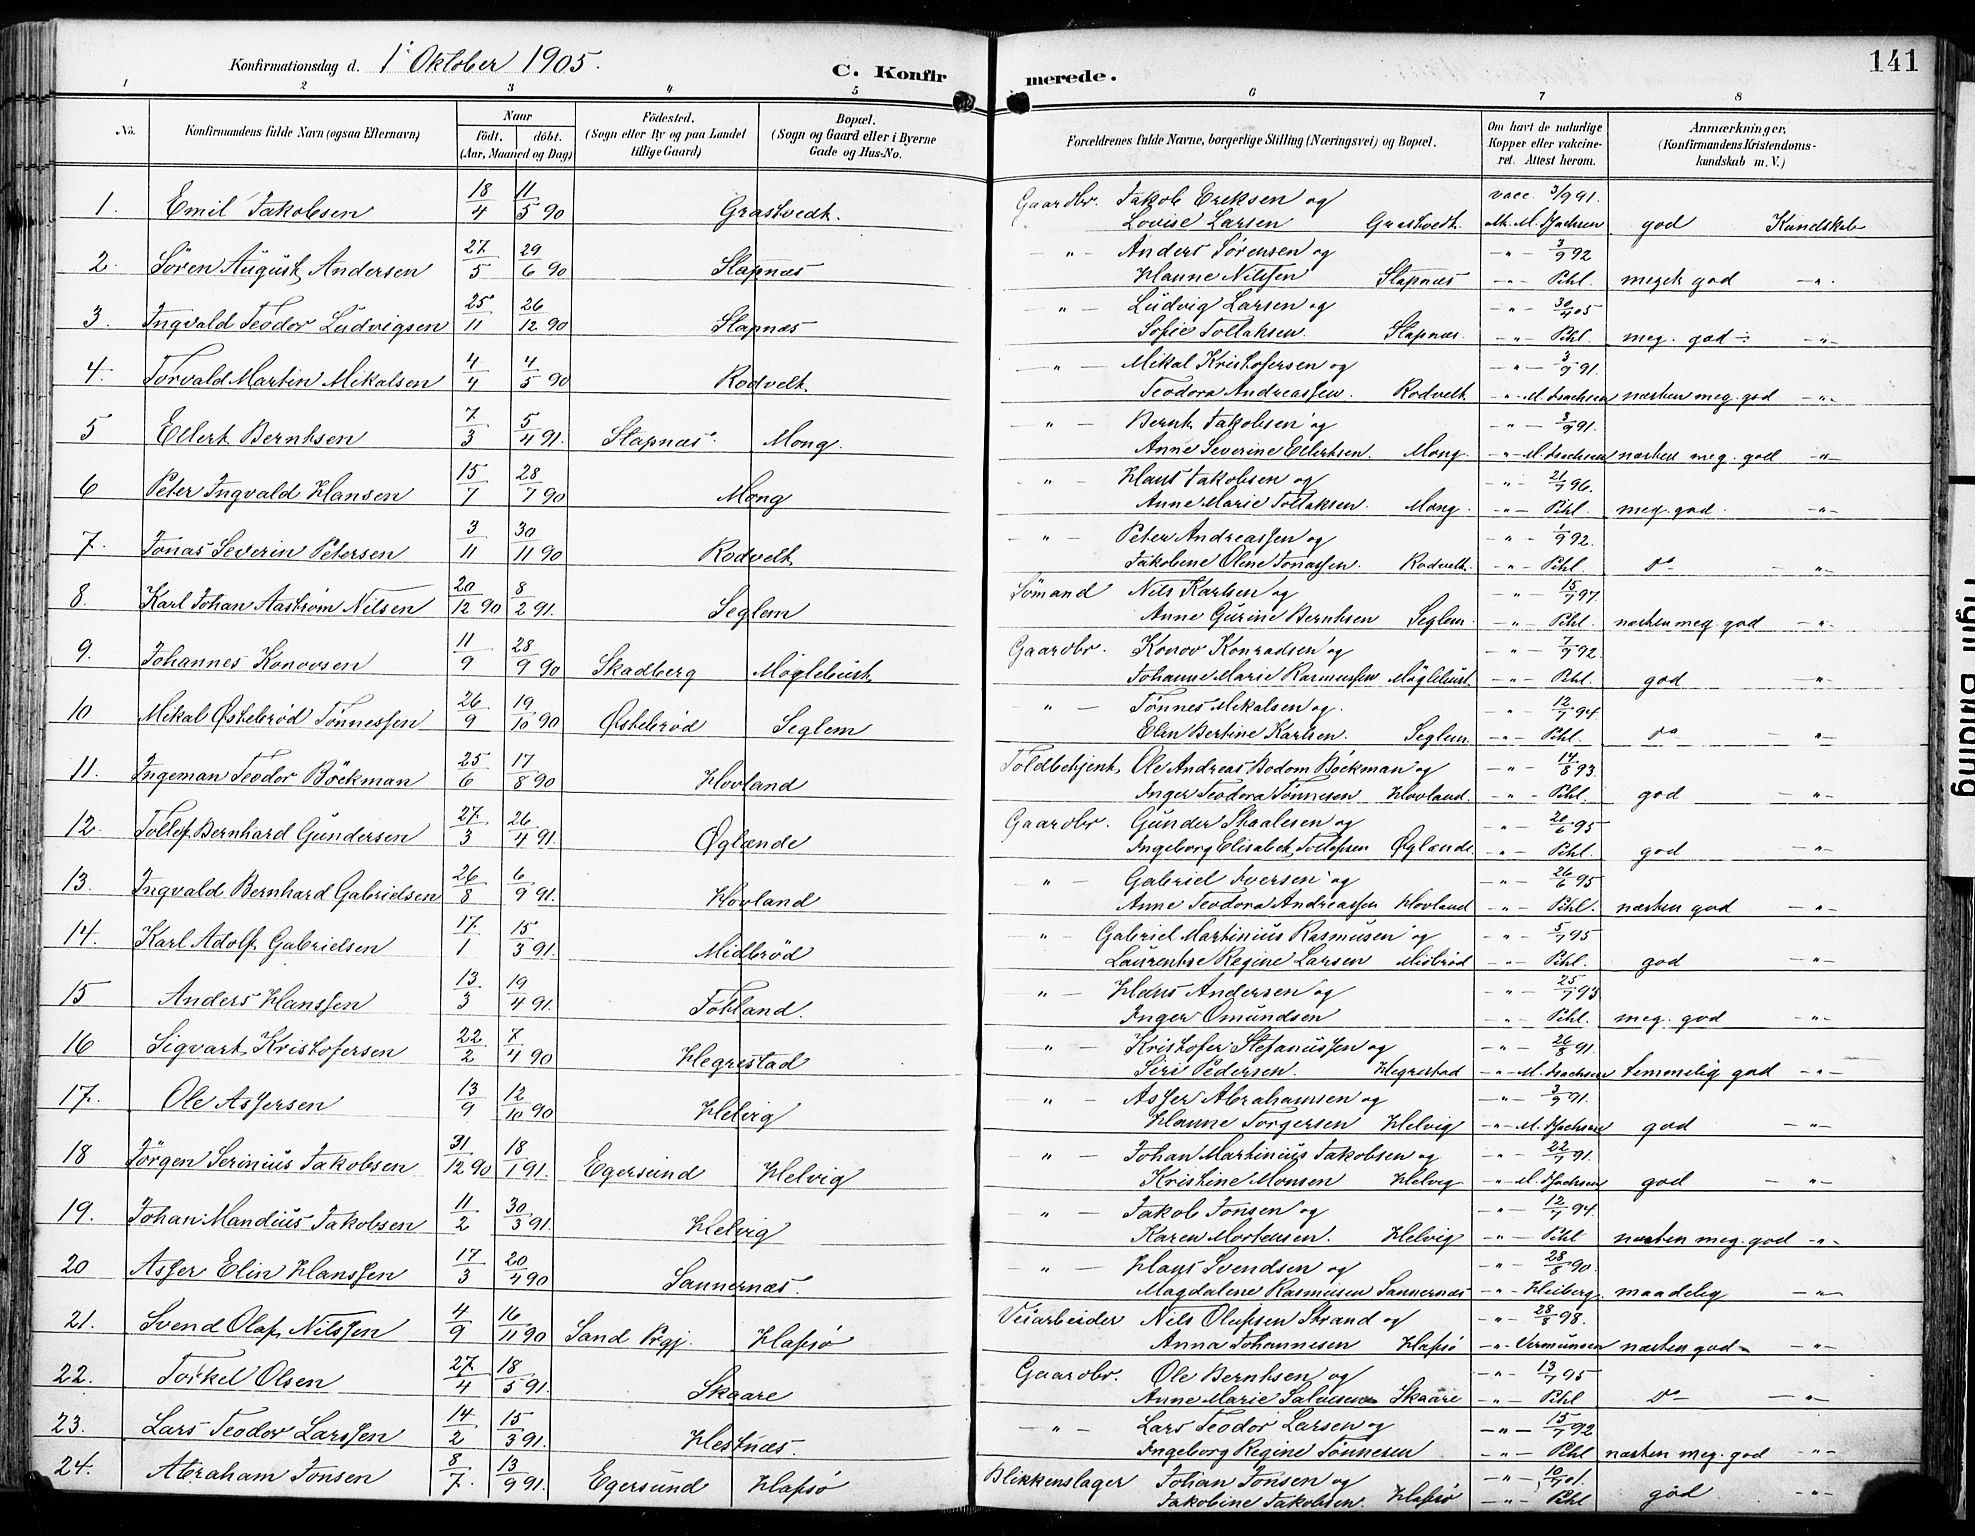 Konfirmationsdag d. 1. Oktober 1905. C. Konfirmerede. 141
1 2 3 4 5 6 7 8
No. Konfirmandens fulde Navn (ogsaa Efternavn) Naar født. døbt. (Aar, Maaned og Dag) Fødested. (Sogn eller By og paa Landet tillige Gaard) Bopæl. (Sogn og Gaard eller i Byerne Gade og Hus-No. Forældrenes fulde Navne, borgerlige Stilling (Næringsvei) og Bopæl. Om havt de naturlige Kopper eller vakcineret. Attest herom. Anmærkninger, (Konfirmandens Kristendomskundskab m. V.)
1. Emil Jakobsen 18/4 11/5 90 Grastvedt. Gaardbr. Jakob Eriksen og vacc. 3/9 91.
Lovise Larsen Grastvedt. M. Isachsen god Kundskab
2. Søren August Andersen 27/5 29/6 90 Stapnæs " Anders Sørensen og -"- 3/9 92
Hanne Nilssen Stapnæs -"- Pihl. meget god -"-
3. Ingvald Teodor Ludvigsen 25/11 26/12 90 Stapnæs " Ludvig Larsen og -"- 30/4 05
Sofie Tollaksen. Stapnæs. -"- Pihl. meg. god -"-
4. Torvald Martin Mikalsen 4/4 4/5 90 Rodvelt. -"- Mikal Kristofersen og -"- 3/9 91.
Teodora Andreassen. Rodvelt -"- M. Isachsen næsten meg. god -"-
5 Ellert Berntsen 7/3 5/4 91. Stapnæs. Mong. -"- Bernt Jakobsen og -"- 3/9 91.
Anne Severine Ellertsen. Mong. -"- M. Isachsen næsten meg. god -"-
6 Peter Ingvald Hansen 15/7 28/7 90 Mong " Hans Jakobsen og -"- 21/7 96.
Anne Marie Tollaksen. Mong. -"- Pihl. meg. god. -"-
7. Jonas Severin Petersen 3/11 30/11 90 Rodvelt -"- Peter Andreassen og -"- 1/9 92.
Jakobine Oline Jonassen. Rodvelt. -"- Pihl. Do -"-
8. Karl Johan Aastrøm Nilsen 20/12 90 8/2 91. Seglem Sømand Nils Karlsen og -"- 15/7 97.
Anne Gurine Berntsen Seglem. -"- Pihl. næsten meg. god -"-
9. Johannes Konovsen 11/9 28/9 90 Skadberg Møglebust. Gaardbr. Konov Konradsen og -"- 7/9 92.
Johanne Marie Rasmussen Møglebust -"- Pihl. god -"-
10 Mikal Østebrød Tønnessen 26/9 19/10 90 Østebrød Seglem " Tønnes Mikalsen og -"- 12/7 94.
Elen Bertine Karlsen. Seglem. -"- Pihl. Do -"-
11. Ingeman Teodor Böckman 25/6 17/8 90 Hovland Toldbetjent Ole Andreas Bodom Böckman og -"- 14/8 93.
Inger Teodora Tønnesen Hovland. -"- Pihl. god -"-
12. Tollef Bernhard Gundersen 27/3 26/4 91. Øglænde Gaardbr. Gunder Skaalesen og -"- 20/6 95
Ingeborg Elisabet Tollefsen Øglænde. -"- Pihl. god -"-
13. Ingvald Bernhard Gabrielsen 26/8 6/9 91. Hovland " Gabriel Iversen og -"- 26/6 95
Anne Teodora Andreassen Hovland -"- Pihl. næsten god -"-
14. Karl Adolf Gabrielsen 17/1 15/3 91. Midbrød " Gabriel Martinius Rasmusen og -"- 5/7 95
Laurentse Regine Larsen Midbrød -"- Pihl. god -"-
15 Anders Hanssen 13/3 19/4 91. Totland. " Hans Andersen og -"- 25/7 93
Inger Omundsen -"- Pihl. meg. god -"-
16 Sigvart Kristofersen 22/2 7/4 90 Hegrestad " Kristofer Stefanussen og -"- 26/8 91.
Siri Pedersen. Hegrestad -"- M. Isachsen temmelig god -"-
17. Ole Assersen 13/9 12/10 90 Helvig " Asser Abrahamsen og -"- 3/9 91.
Hanne Torgersen Helvig -"- M. Isachsen god -"-
18 Jørgen Serinius Jakobsen 31/12 90 18/1 91. Egersund Helvig " Johan Martinius Jakobsen og -"- 22/7 91.
Kristine Monsen Helvig -"- M. Isachsen god -"-
19. Johan Mandius Jakobsen 11/2 30/3 91. Helvig " Jakob Jonsen og -"- 12/7 94.
Karen Mortensen. Helvig -"- Pihl næsten meg. god -"-
20 Asser Elin Hanssen 17/3 20/4 90 Sannernæs. " Hans Svendsen og -"- 28/8 90.
Magdalene Rasmusen Sannernæs -"- Heiberg. maadelig -"-
21. Svend Olaf Nilssen 4/9 16/11 90 Sand Prgj. Hafsø Veiarbeider Nils Olufsen Strand og -"- 28/8 98.
Anna Johannesen Hafsø -"- Vermundsen næsten god -"-
22. Torkel Olsen 27/4 18/5 91. Skaare Gaardbr. Ole Berntsen og -"- 13/7 95
Anne Marie Salvesen Skaare -"- Pihl Do -"-
23. Lars Teodor Larssen 14/2 15/3 91. Hestnæs. " Lars Teodor Larsen og -"- 15/7 92
Ingeborg Regine Tønnesen -"- Pihl næsten meg. god -"-
24. Abraham Jonsen 8/7. 13/9 91. Egersund Hafsø Blikkenslager Johan Jonsen og -"- 10/7 01.
Jakobine Jakobsen. Hafsø -"- Pihl god. -"-